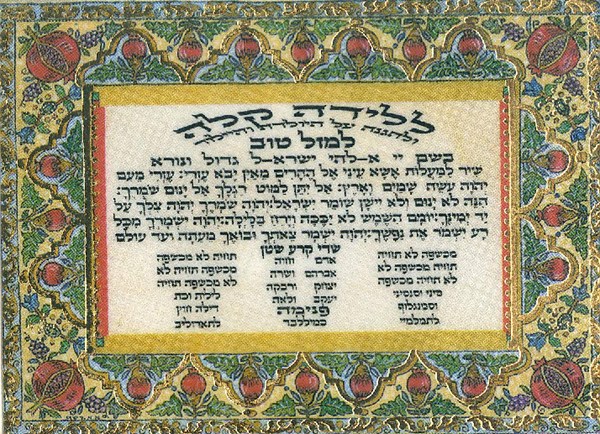 ללידה קלה
ולהגנה על היולדת
למזל טוב
בשם יי א-להי ישרא-ל גדול ונורא
שיר למעלות אשא עיני אל ההרים מאין יבא עזרי: עזרי מעם
יהוה עשה שמים וארץ: אל יתן למוט רגלך אל ינום שמרך:
הנה לא ינום ולא יישן שומר ישראל:יהוה שמרך יהוה צלך על
יד ימינך:יומם השמש לא יככה וירח בלילה:יהוה ישמרך מכל
רע ישמר את נפשך:יהוה ישמר צאתך ובואך מעתה ועד עולם
שדי קרע שטן
מכשפה לא תחיה
תחיה מכשפה לא
לא תחיה מכשפה
סיני וסנסיני
וסמנגלוף
לתמלמיי
אדם וחוה
אברהם ושרה
יצחק ורבקה
יעקב ולאה
פנימה
תחיה לא מכשפה
מכשפה תחיה לא
לא מכשפה תחיה
לילית וכת
דילה חוץ